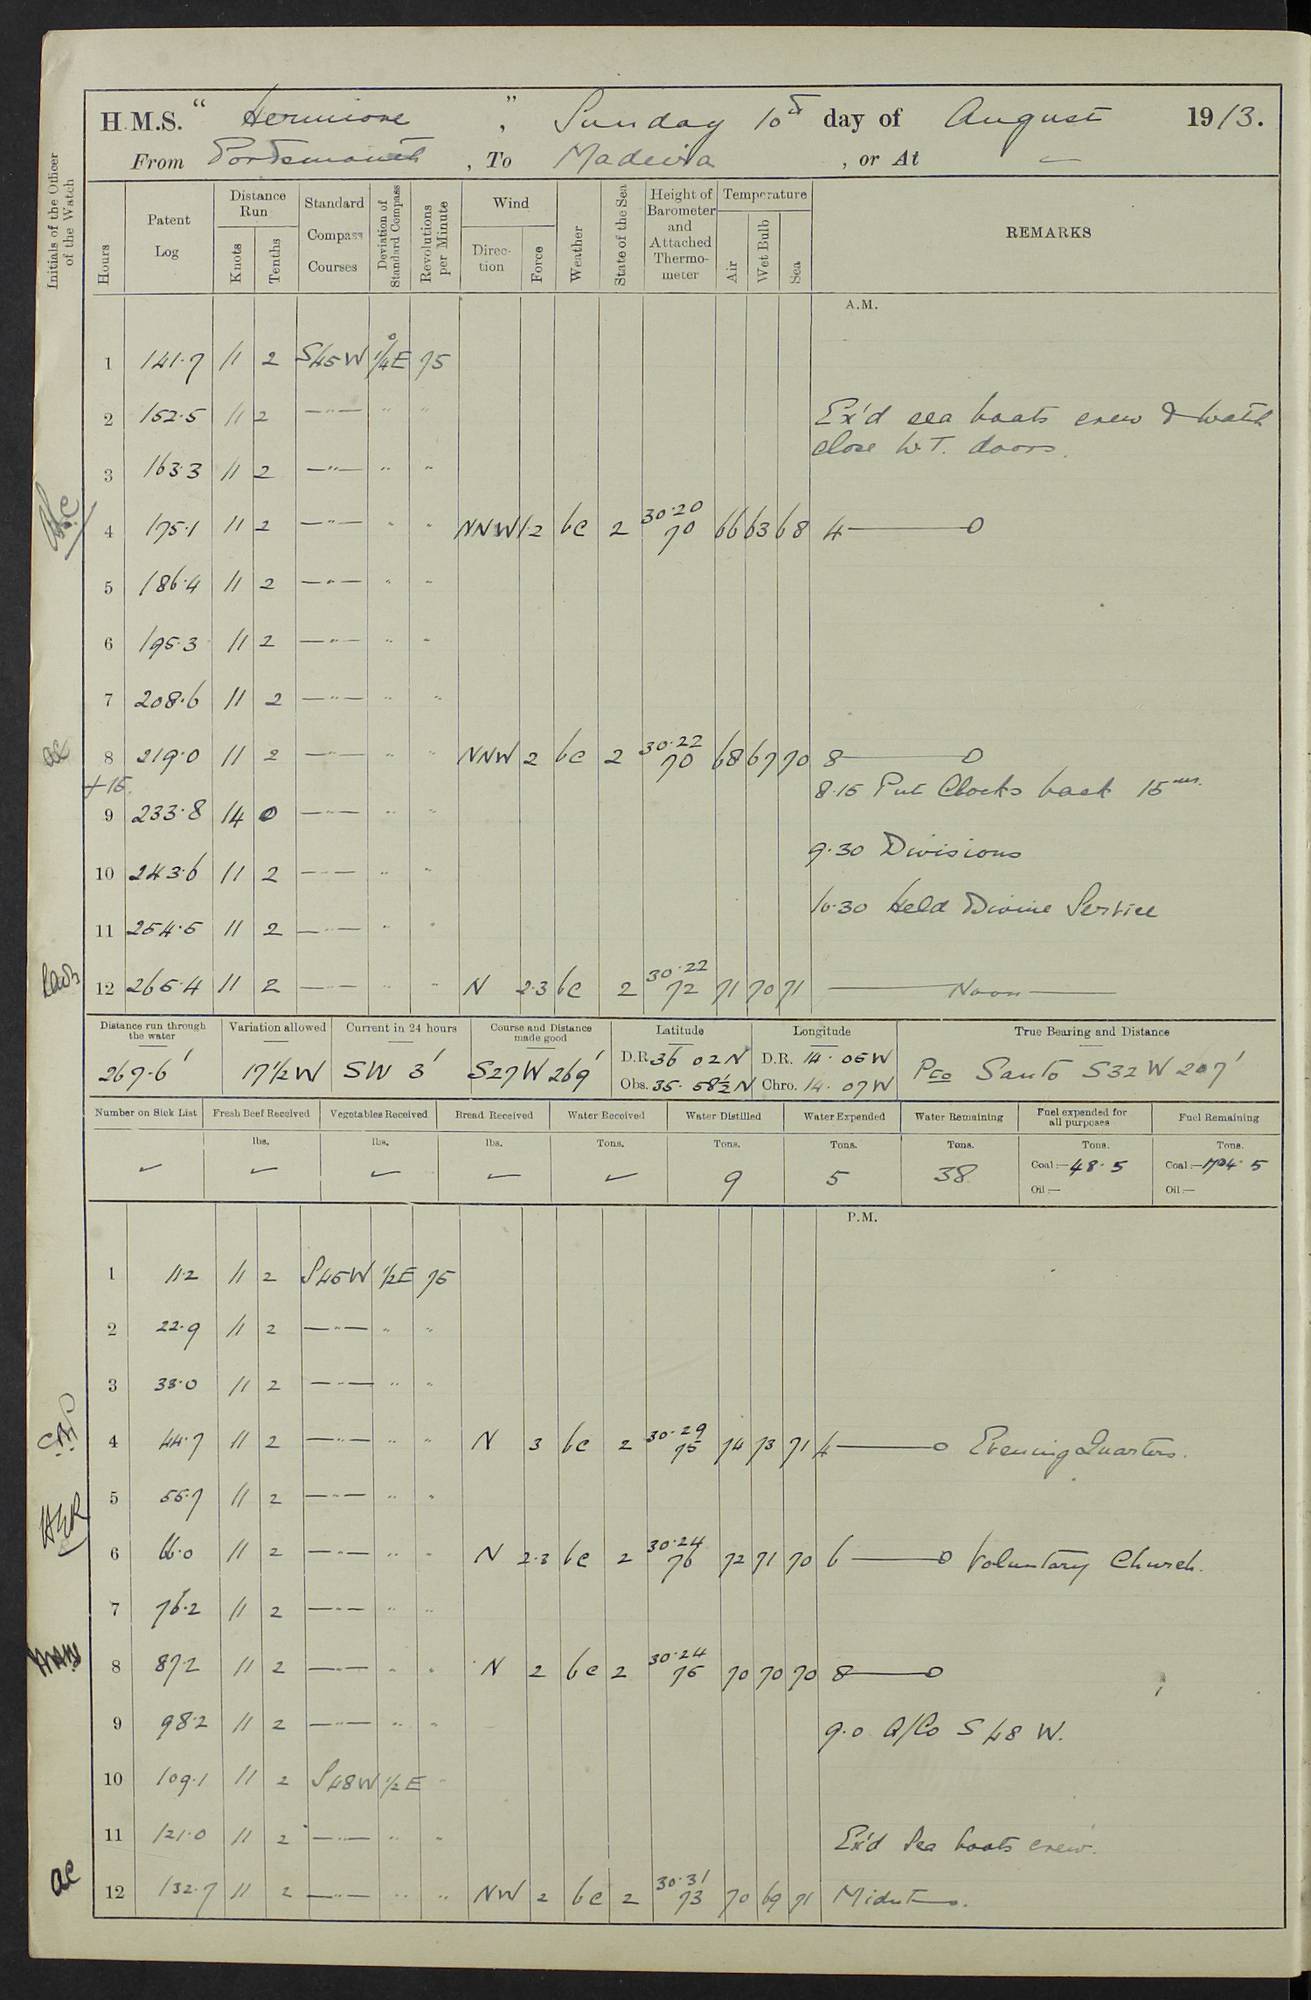 H.M.S. "Hermione", Sunday 10th day of August 1913.
From Portsmouth, To Madeira, or At —
Initials of the Officer of the Watch
Hours
Patent Log
Distance Run
Knots
Tenths
Standard Compass Courses
Deviation of Standard Compass
Revolutions per Minute
Wind
Direction
Force
Weather
State of the Sea
Height of Barometer and Attached Thermometer
Temperature
Air
Wet Bulb
Sea
REMARKS
A.M.
1 141.7 11 2 S45W 1/4°E 75
2 152.5 11 2 —"— " " Ex'd sea boats crew & watch
close W.T. doors.
3 163.3 11 2 —"— " "
4 175.1 11 2 —"— " " NNW 1.2 bc 2 30.20 70 66 63 68 4 ——— 0
5 186.4 11 2 —"— " "
6 195.3 11 2 —"— " "
7 208.6 11 2 —"— " "
8 219.0 11 2 —"— " " NNW 2 bc 2 30.22 70 68 67 70 8 ——— 0
+15 8.15 Put Clocks back 15 ms.
9 233.8 14 0 —"— " "
9.30 Divisions
10 243.6 11 2 —"— " "
10.30 Held Divine Service
11 254.5 11 2 —"— " "
12 265.4 11 2 —"— " " N 2.3 bc 2 30.22 72 71 70 71 ——— Noon ———
Distance run through the water
267.6'
Variation allowed
17 1/2 W
Current in 24 hours
SW 3'
Course and Distance made good
S27W 269'
Latitude
D.R. 36 02 N
Obs. 35. 58 1/2 N
Longitude
D.R. 14. 05 W
Chro. 14. 07 W
True Bearing and Distance
Pto Santo S32W 207'
Number on Sick List
Fresh Beef Received lbs.
Vegetables Received lbs.
Bread Received lbs.
Water Received Tons.
Water Distilled Tons. 9
Water Expended Tons. 5
Water Remaining Tons. 38
Fuel expended for all purposes Tons.
Coal:— 48.5
Oil:—
Fuel Remaining Tons.
Coal:— 1704.5
Oil:—
P.M.
1 11.2 11 2 S45W 1/2E 75
2 22.9 11 2 —"— " "
3 33.0 11 2 —"— " "
4 44.7 11 2 —"— " " N 3 bc 2 30.29 75 74 73 71 4 ——— 0 Evening Quarters.
5 55.7 11 2 —"— " "
6 66.0 11 2 —"— " " N 2.3 bc 2 30.24 76 72 71 70 6 ——— 0 Voluntary Church.
7 76.2 11 2 —"— " "
8 87.2 11 2 —"— " " N 2 bc 2 30.24 75 70 70 70 8 ——— 0
9 98.2 11 2 —"— " " 9.0 A/Co S 48 W.
10 109.1 11 2 S48W 1/2E "
11 121.0 11 2 —"— " " Ex'd Sea boats crew.
12 132.7 11 2 —"— " " NW 2 bc 2 30.31 73 70 69 71 Midnt.